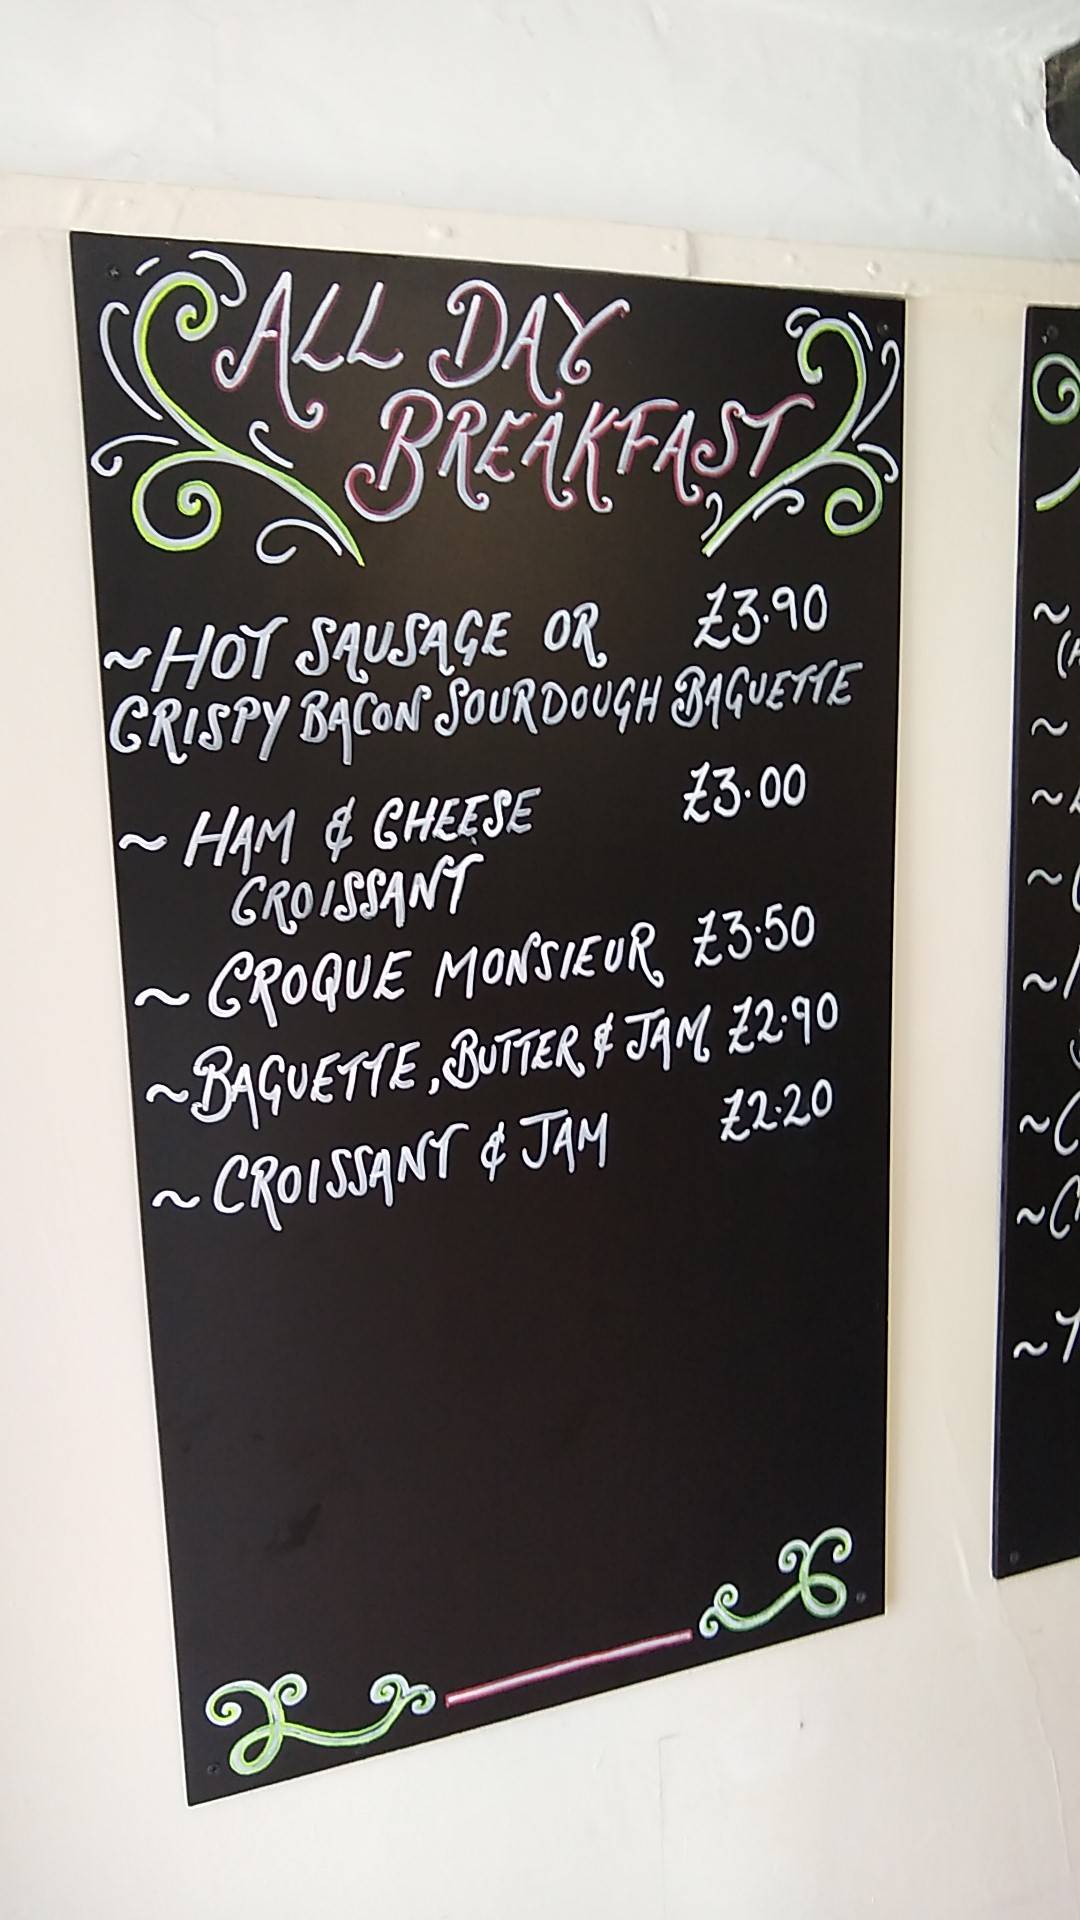 ALL DAY
BREAKFAST
~HOT SAUSAGE OR £3.90
CRISPY BACON SOURDOUGH BAGUETTE
~ HAM & CHEESE £3.00
CROISSANT
~ CROQUE MONSIEUR £3.50
~BAGUETTE, BUTTER & JAM £2.90
~ CROISSANT & JAM £2.20